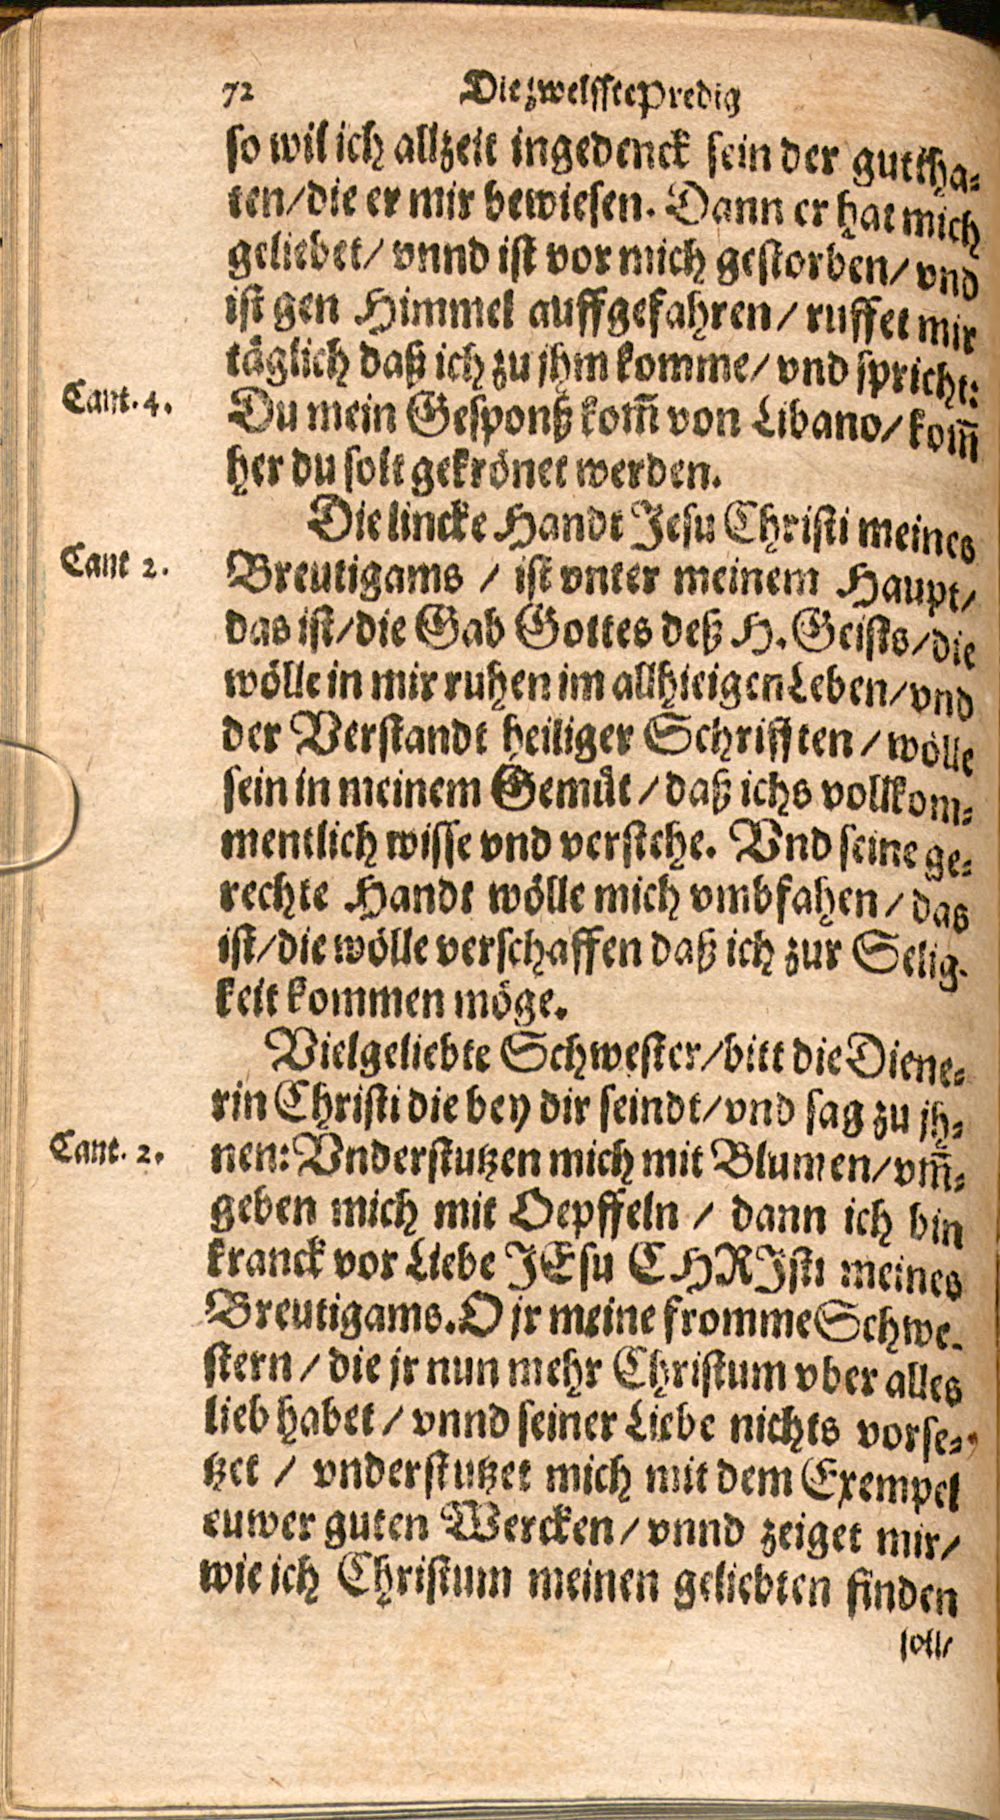 72 Die zwelffte Predig
so wil ich allzeit ingedenck sein der guttha⸗
ten/die er mir bewiesen. Dann er hat mich
geliebet/ vnnd ist vor mich gestorben/ vnd
ist gen Himmel auffgefahren/ ruffet mir
täglich daß ich zu jhm komme/ vnd spricht:
Cant. 4. Du mein Gesponß kom̃ von Libano/ kom̃
her du solt gekrönet werden.
Die lincke Handt Jesu Christi meines
Cant 2. Breutigams / ist vnter meinem Haupt/
das ist/die Gab Gottes deß H. Geists/die
wölle in mir ruhen im allhieigen Leben/vnd
der Verstandt heiliger Schrifften / wölle
sein in meinem Gemüt / daß ichs vollkom⸗
mentlich wisse vnd verstehe. Vnd seine ge⸗
rechte Handt wölle mich vmbfahen / das
ist/die wölle verschaffen daß ich zur Selig⸗
keit kommen möge.
Vielgeliebte Schwester/bitt die Diene⸗
rin Christi die bey dir seindt/vnd sag zu jh⸗
Cant. 2. nen: Vnderstutzen mich mit Blumen/vm̃⸗
geben mich mit Oepffeln / dann ich bin
kranck vor Liebe JEsu CHRJsti meines
Breutigams. O jr meine fromme Schwe⸗
stern / die jr nun mehr Christum vber alles
lieb habet / vnnd seiner Liebe nichts vorse⸗
tzet / vnderstutzet mich mit dem Exempel
euwer guten Wercken / vnnd zeiget mir/
wie ich Christum meinen geliebten finden
soll/